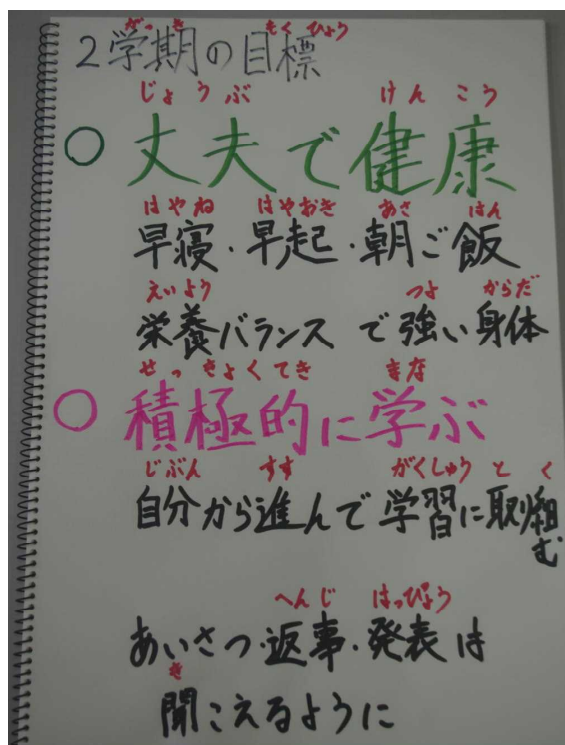 がっき もくひょう
2学期の目標
じょうぶ けんこう
○ 丈夫で健康
はやね はやおき あさ はん
早寝・早起・朝ご飯
えいよう つよ からだ
栄養バランス で強い身体
せっきょくてき まな
○ 積極的に学ぶ
じぶん すす がくしゅう と く
自分から進んで学習に取り組
む
へんじ はっぴょう
あいさつ・返事・発表は
き
聞こえるように